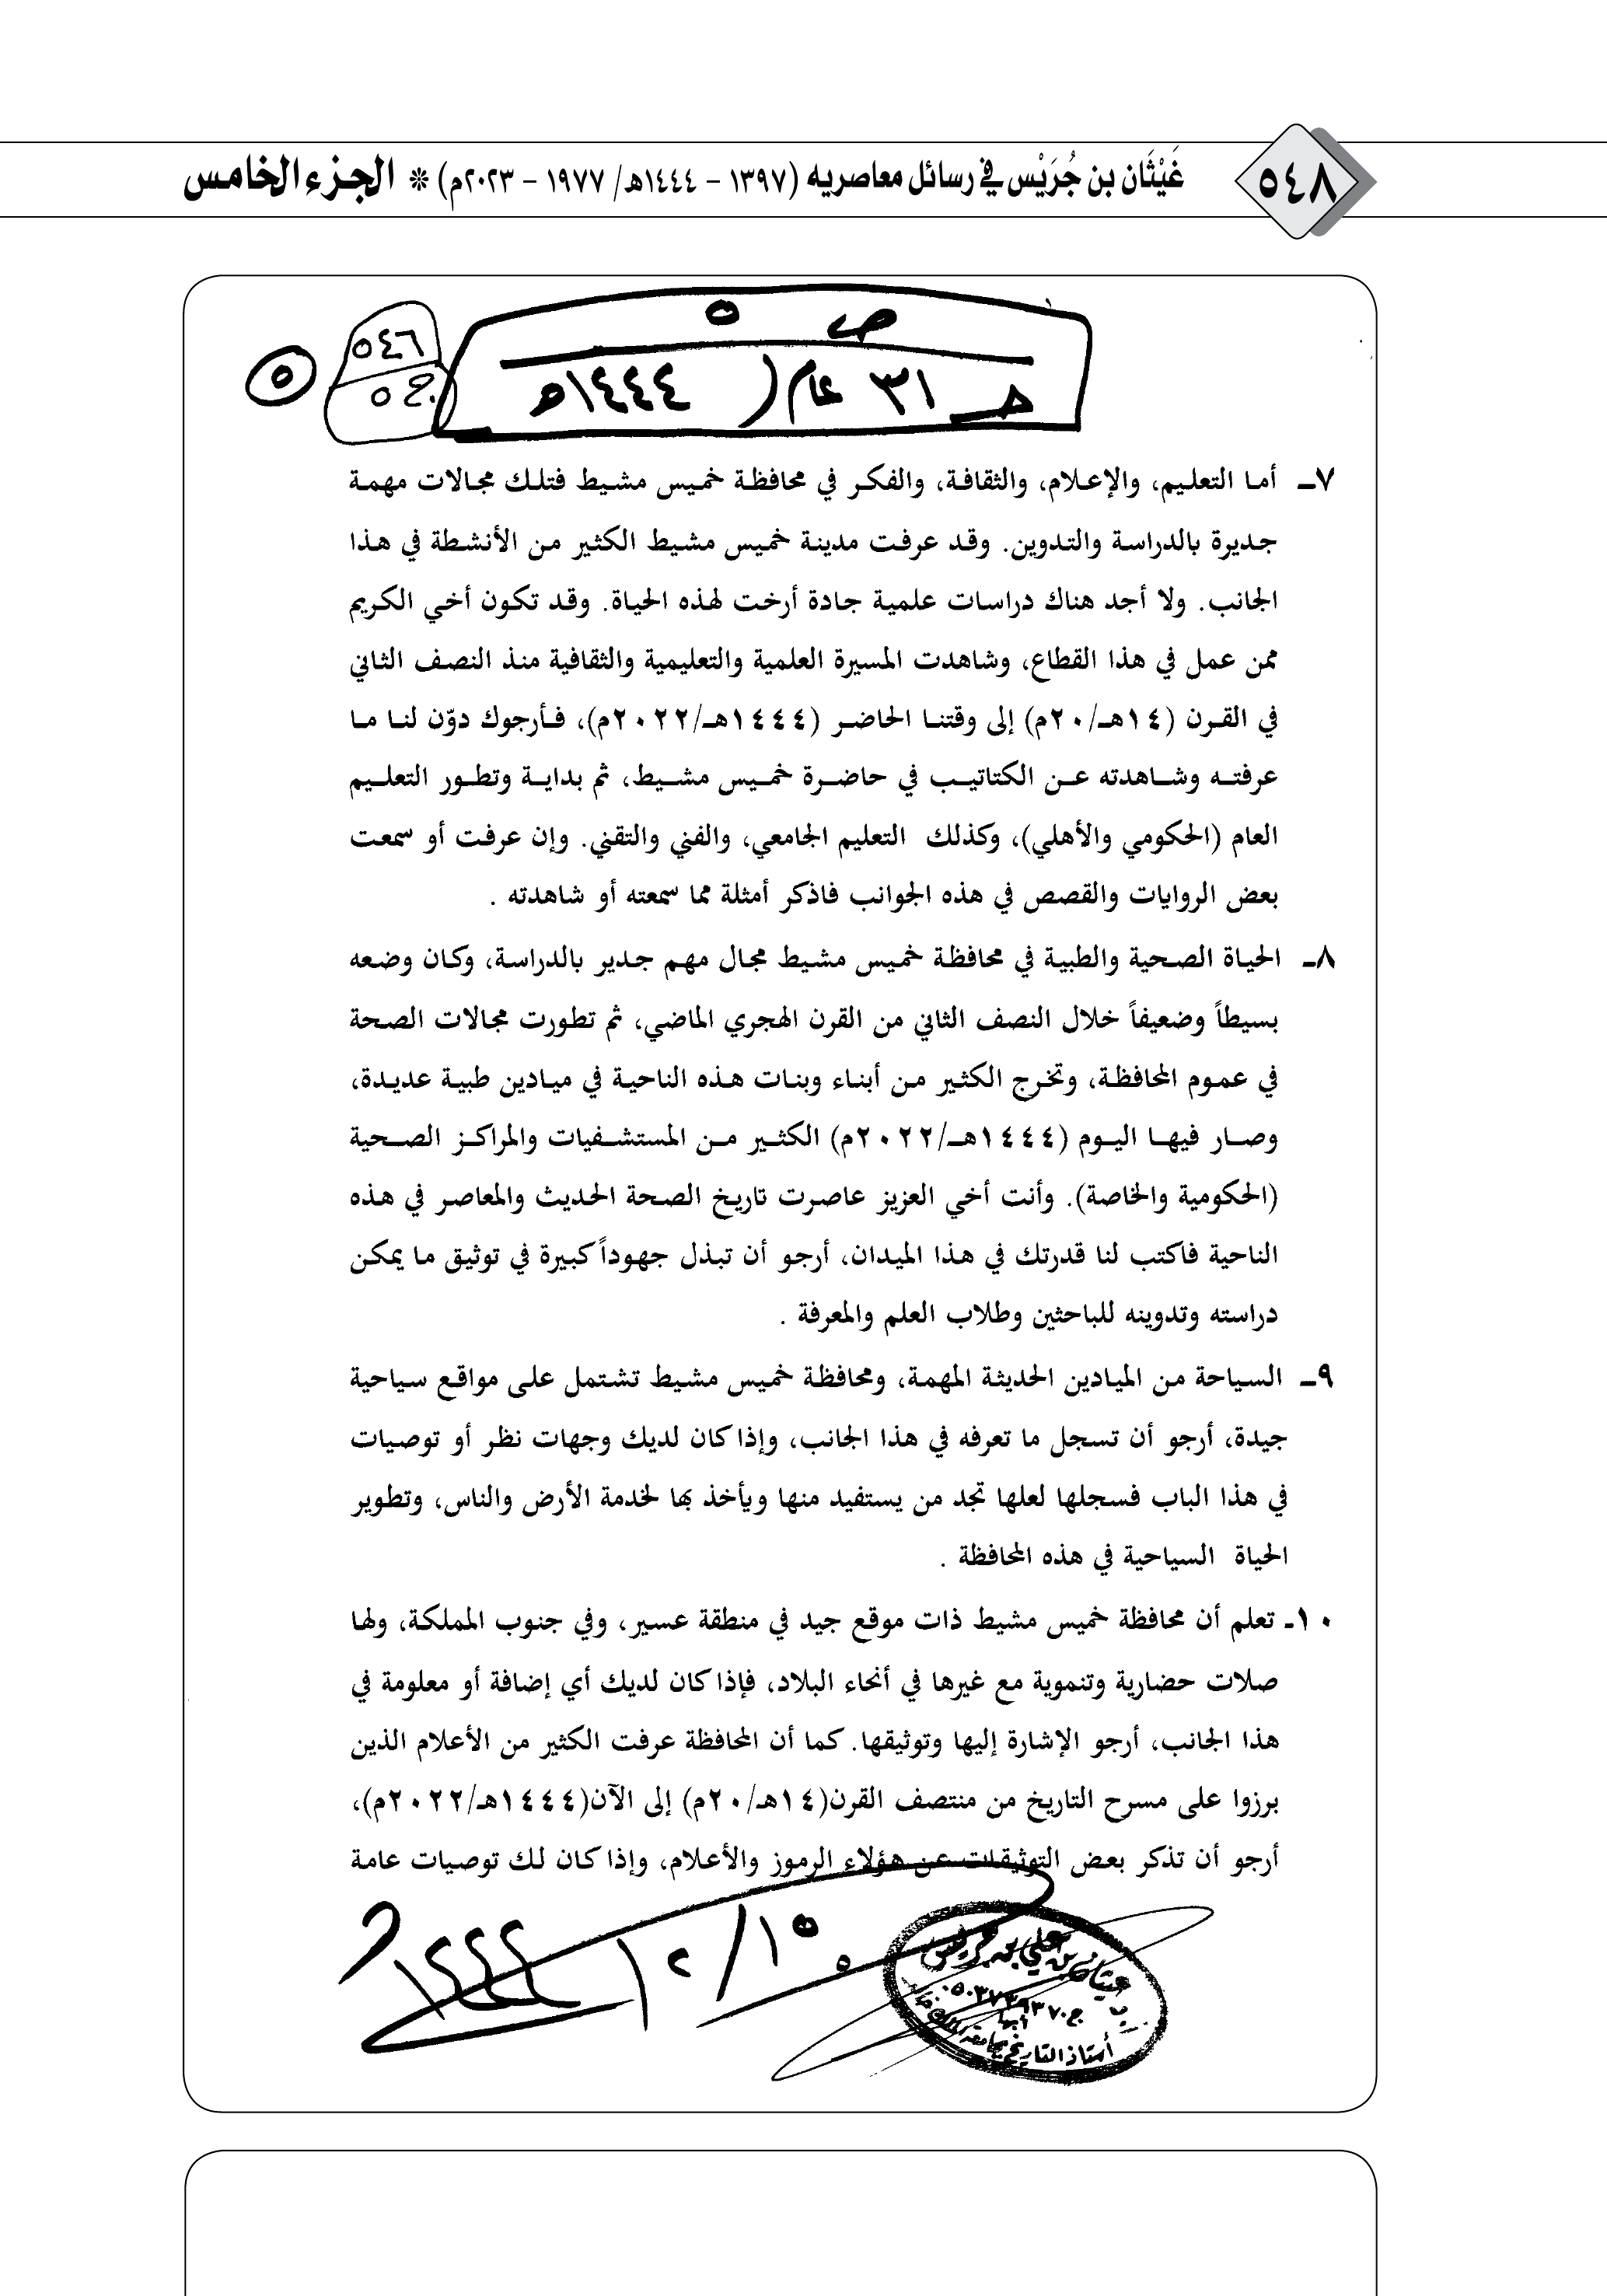 ٥٤٨
غَيْثَان بن جُرَيْس في رسائل معاصريه (١٣٩٧ - ١٤٤٤هـ/ ١٩٧٧ - ٢٠٢٣م) * الجزء الخامس
ص ٥
هـ ٣١ عام ( ١٤٤٤هـ
٥٤٦
ج ٥
٥
٧ـ أما التعليم، والإعلام، والثقافة، والفكر في محافظة خميس مشيط فتلك مجالات مهمة
جديرة بالدراسة والتدوين. وقد عرفت مدينة خميس مشيط الكثير من الأنشطة في هذا
الجانب. ولا أجد هناك دراسات علمية جادة أرخت لهذه الحياة. وقد تكون أخي الكريم
ممن عمل في هذا القطاع، وشاهدت المسيرة العلمية والتعليمية والثقافية منذ النصف الثاني
في القرن (١٤هـ/٢٠م) إلى وقتنا الحاضر (١٤٤٤هـ/٢٠٢٢م)، فأرجوك دوّن لنا ما
عرفته وشاهدته عن الكتاتيب في حاضرة خميس مشيط، ثم بداية وتطور التعليم
العام (الحكومي والأهلي)، وكذلك التعليم الجامعي، والفني والتقني. وإن عرفت أو سمعت
بعض الروايات والقصص في هذه الجوانب فاذكر أمثلة مما سمعته أو شاهدته .
٨ـ الحياة الصحية والطبية في محافظة خميس مشيط مجال مهم جدير بالدراسة، وكان وضعه
بسيطاً وضعيفاً خلال النصف الثاني من القرن الهجري الماضي، ثم تطورت مجالات الصحة
في عموم المحافظة، وتخرج الكثير من أبناء وبنات هذه الناحية في ميادين طبية عديدة،
وصار فيها اليوم (١٤٤٤هـ/٢٠٢٢م) الكثير من المستشفيات والمراكز الصحية
(الحكومية والخاصة). وأنت أخي العزيز عاصرت تاريخ الصحة الحديث والمعاصر في هذه
الناحية فاكتب لنا قدرتك في هذا الميدان، أرجو أن تبذل جهوداً كبيرة في توثيق ما يمكن
دراسته وتدوينه للباحثين وطلاب العلم والمعرفة .
٩ـ السياحة من الميادين الحديثة المهمة، ومحافظة خميس مشيط تشتمل على مواقع سياحية
جيدة، أرجو أن تسجل ما تعرفه في هذا الجانب، وإذا كان لديك وجهات نظر أو توصيات
في هذا الباب فسجلها لعلها تجد من يستفيد منها ويأخذ بها لخدمة الأرض والناس، وتطوير
الحياة السياحية في هذه المحافظة .
١٠ـ تعلم أن محافظة خميس مشيط ذات موقع جيد في منطقة عسير، وفي جنوب المملكة، ولها
صلات حضارية وتنموية مع غيرها في أنحاء البلاد، فإذا كان لديك أي إضافة أو معلومة في
هذا الجانب، أرجو الإشارة إليها وتوثيقها. كما أن المحافظة عرفت الكثير من الأعلام الذين
برزوا على مسرح التاريخ من منتصف القرن(١٤هـ/٢٠م) إلى الآن(١٤٤٤هـ/٢٠٢٢م)،
أرجو أن تذكر بعض التوثيقات عن هؤلاء الرموز والأعلام، وإذا كان لك توصيات عامة
غيثان بن علي بن جريس
ج ٠٥٠٣٧٣٩٣٧٠
أبها
أستاذ التاريخ بجامعة الملك خالد